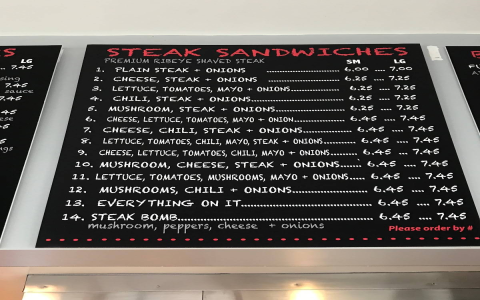 S
STEAK SANDWICHES
PREMIUM RIBEYE SHAVED STEAK SM LG
1. PLAIN STEAK + ONIONS 6.00 .... 7.00
2. CHEESE, STEAK + ONIONS 6.25 .... 7.25
3. LETTUCE, TOMATOES, MAYO + ONIONS 6.25 .... 7.25
4. CHILI, STEAK + ONIONS 6.25 .... 7.25
5. MUSHROOM, STEAK + ONIONS 6.25 .... 7.25
6. CHEESE, LETTUCE, TOMATOES, MAYO + ONION 6.45 .... 7.45
7. CHEESE, CHILI, STEAK + ONIONS 6.45 .... 7.45
8. LETTUCE, TOMATOES, CHILI, MAYO, STEAK + ONIONS 6.45 .... 7.45
9. CHEESE, LETTUCE, TOMATOES, CHILI, MAYO + ONIONS 6.45 .... 7.45
10. MUSHROOM, CHEESE, STEAK + ONIONS 6.45 .... 7.45
11. LETTUCE, TOMATOES, MUSHROOMS, MAYO + ONIONS 6.45 .... 7.45
12. MUSHROOMS, CHILI + ONIONS 6.45 .... 7.45
13. EVERYTHING ON IT 6.45 .... 7.45
14. STEAK BOMB 6.45 .... 7.45
mushroom, peppers, cheese + onions
Please order by #
LG
7.45
7.45
sauce
7.45